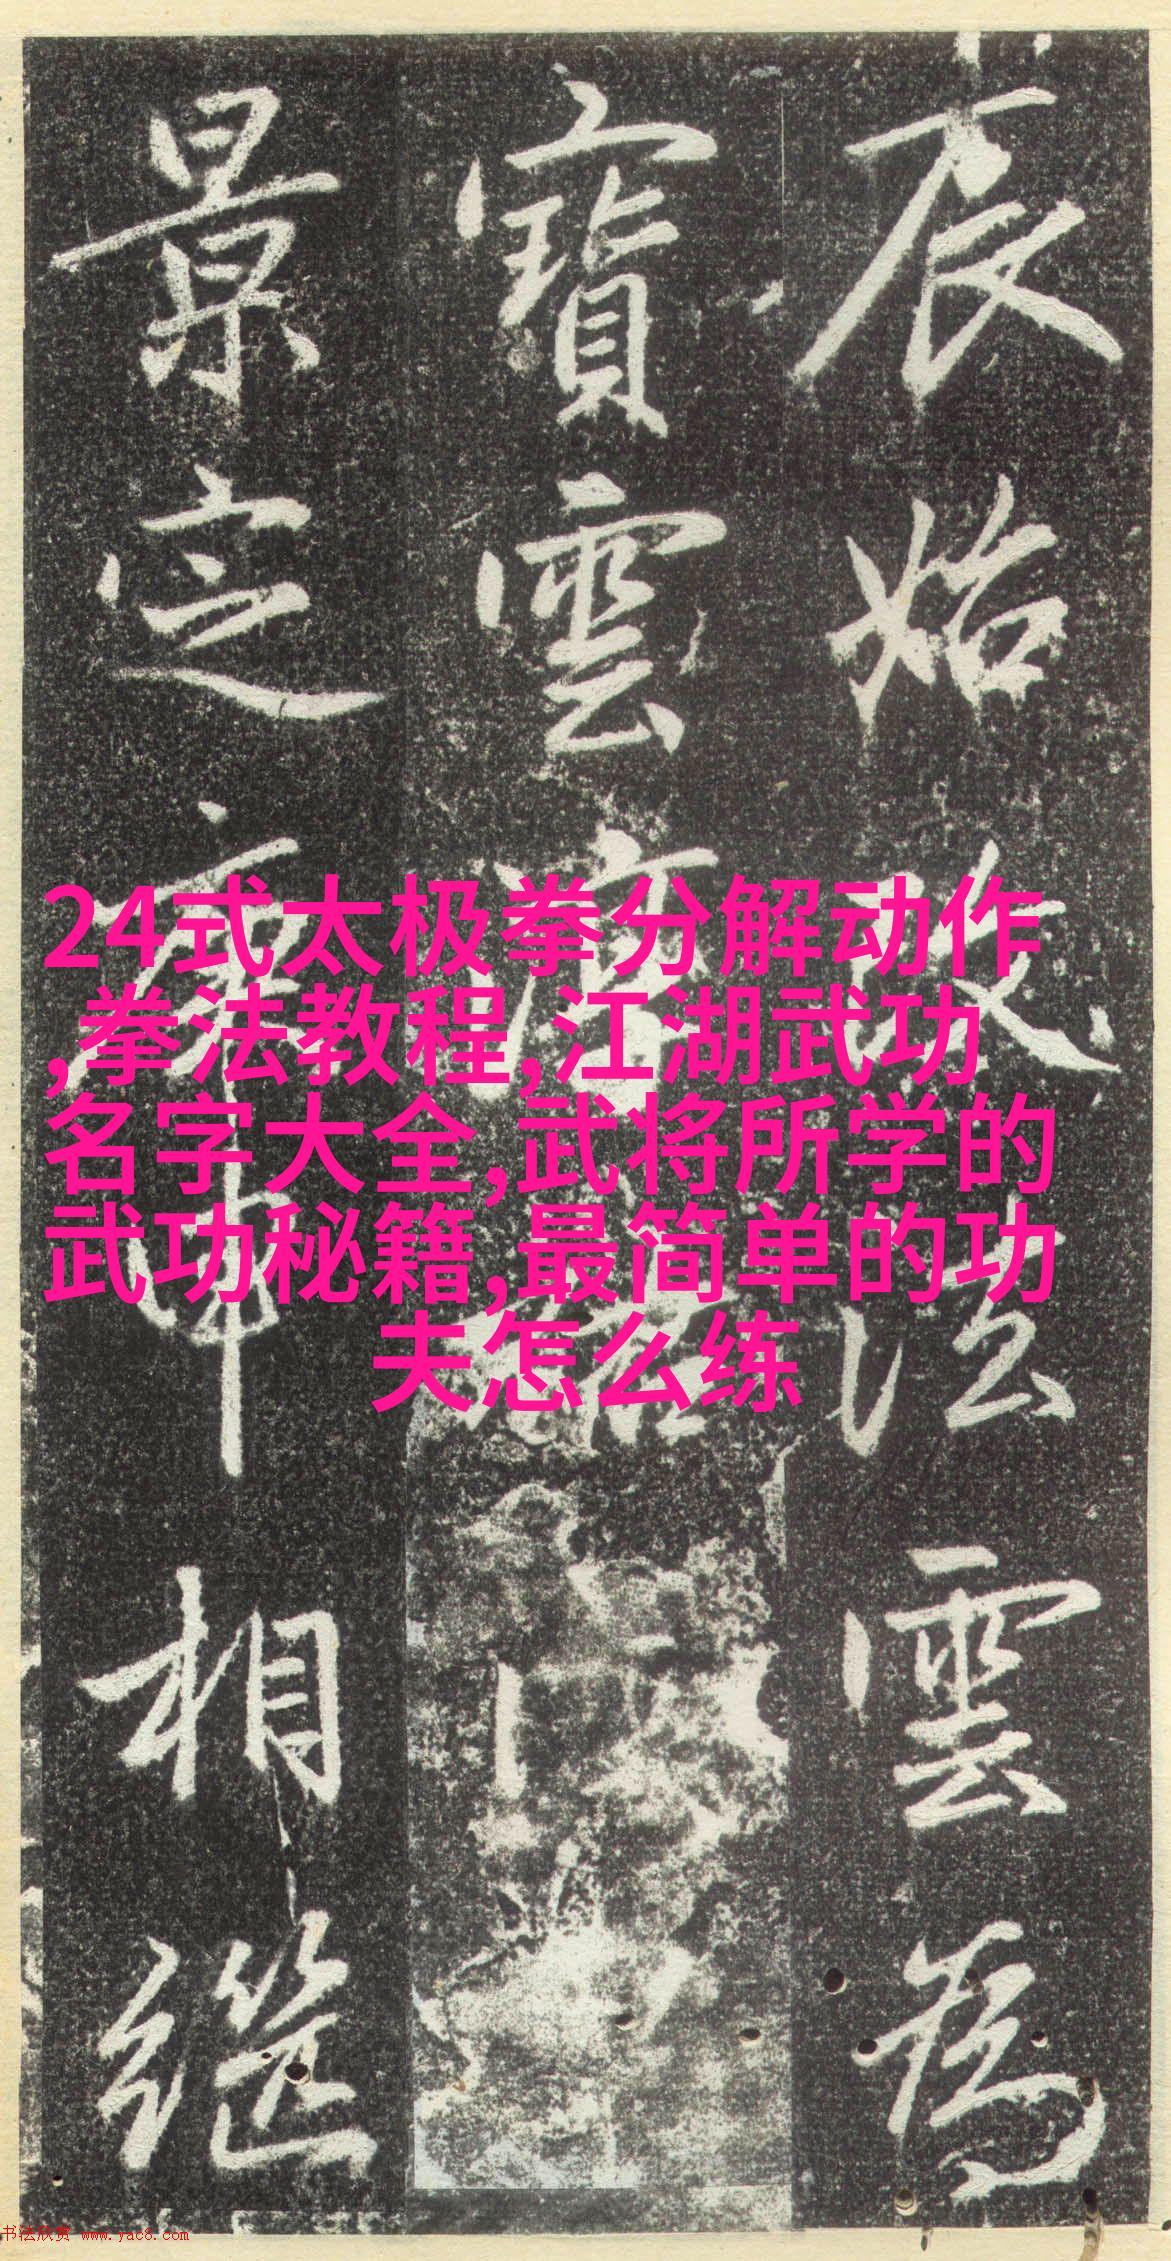 辰始啟法雲為
寶雲
景定庚申相繼
24式太极拳分解动作
,拳法教程,江湖武功
名字大全,武将所学的
武功秘籍,最简单的功
夫怎么练
书法欣赏 www.yac8.com